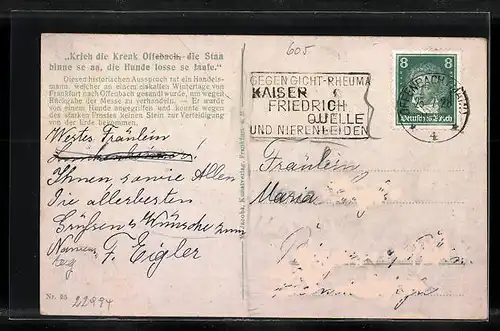 „Krieh die Krenk Offebach, die Staa
binne se aa, die Hunde losse se laafe.“
Diesen historischen Ausspruch tat ein Handels-
mann, welcher an einem eiskalten Wintertage von
Frankfurt nach Offenbach gesandt wurde, um wegen
Rückgabe der Messe zu verhandeln. — Er wurde
von einem Hunde angegriffen und konnte wegen
des starken Frostes keinen Stein zur Verteidigung
von der Erde bekommen.
Wertes Fräulein
Ihnen sowie Allen
die allerbesten
Grüsse u. Wünsche zum
Namens
tag F. Eigler
Nr. 25
22994
Kunstverlag, Frankfurt a. M.
605
GEGEN GICHT-RHEUMA
KAISER
FRIEDRICH
QUELLE
UND NIERENLEIDEN
8 8
Deutsches Reich
OFFENBACH (MAIN)
4
Fräulein
Maria